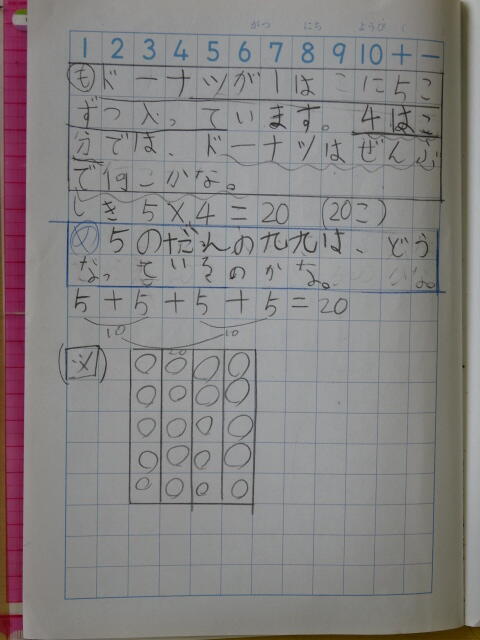 がつ にち ようび (
1 2 3 4 5 6 7 8 9 10 + −
も ドーナツが1はこに5こ
ずつ入っています。4はこ
分では、ドーナツはぜんぶ
で何こかな。
しき 5×4=20 (20こ)
め 5のだんの九九は、どう
なっているのかな。
5+5+5+5=20
10 10
(図)
20